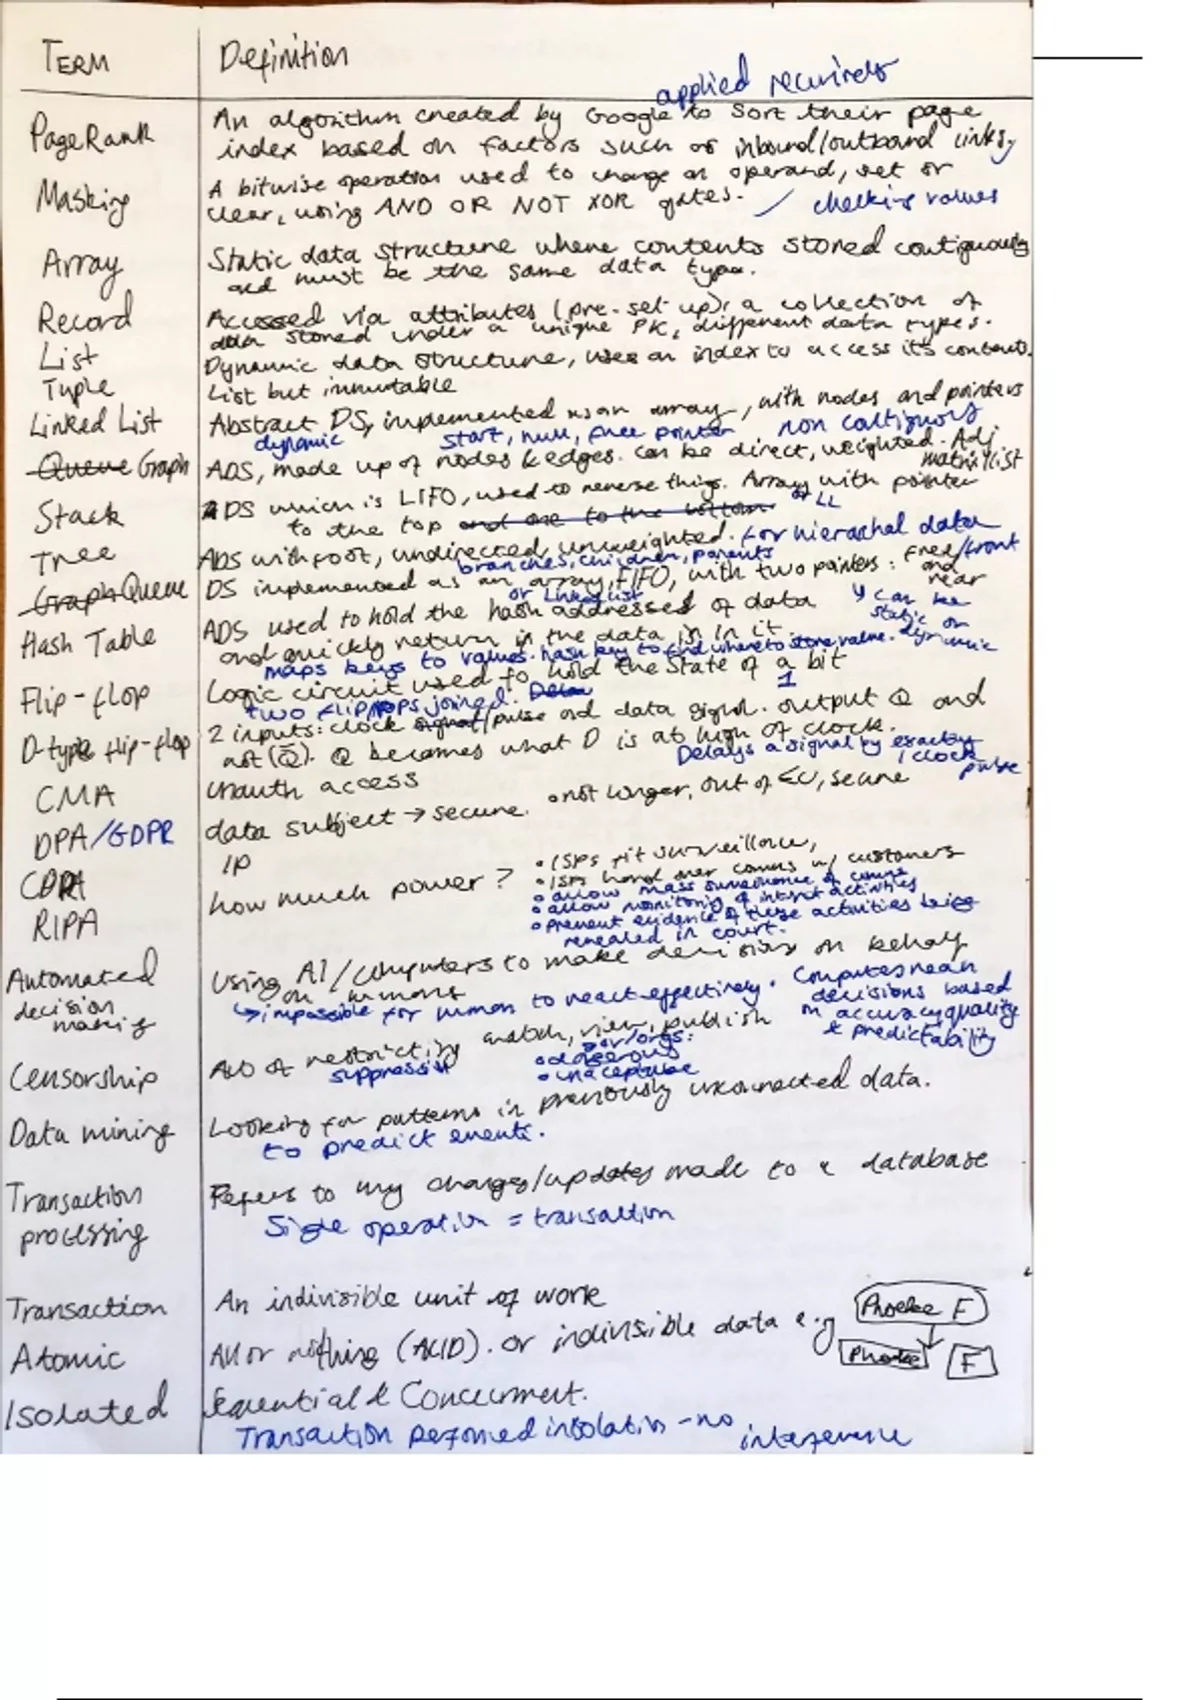 TERM Definition
applied recursively
PageRank An algorithm created by Google to sort their page
index based on factors such as inbound/outbound links,
Masking A bitwise operation used to change an operand, set or
clear, using AND OR NOT XOR gates. checking values
Array Static data structure where contents stored contiguously
and must be the same data type.
Record Accessed via attributes (pre-set up), a collection of
data stored under a unique PK, different data types.
List Dynamic data structure, uses an index to access its contents.
Tuple List but immutable
Linked List Abstract DS, implemented as an array, with nodes and pointers
dynamic start, null, free pointer non contiguous
Queue Graph ADS, made up of nodes & edges. can be direct, weighted. Adj
matrix/list
Stack ADS which is LIFO, used to reverse things. Array with pointer
or LL
to the top and one to the bottom
Tree ADS with root, undirected, unweighted. for hierachal data
branches, children, parents
Graph Queue DS implemented as an array, FIFO, with two pointers: free/front
and rear
or Linked List
can be static or dynamic
Hash Table ADS used to hold the hash addresses of data
and quickly return in the data is in it
maps keys to values. hash key to find where to store value.
Flip-flop Logic circuit used to hold the state of a bit
1
two flipflops joined.
D-type flip-flop 2 inputs: clock signal/pulse and data signal. output Q and
not (Q̄). Q becomes what D is at high of clock.
Delays a signal by exactly
1 clock pulse
CMA unauth access
DPA/GDPR data subject → secure. • not longer, out of EU, secure
CDPA IP
RIPA how much power? • ISPs fit surveillance,
• ISPs hand over comms w/ customers
• allow mass surveillance of comms
• allow monitoring of internet activities
• prevent evidence of these activities being
revealed in court.
Automated
decision
making
Using AI/computers to make decisions on behalf
on humans
↳ impossible for human to react effectively. Computers mean
decisions based
on accuracy quality
& predictability
Censorship Act of restricting watch, view, publish
suppression gov/orgs:
• dangerous
• unacceptable
Data mining Looking for patterns in previously unconnected data.
to predict events.
Transaction
processing
Refers to any changes/updates made to a database
Single operation = transaction
Transaction An indivisible unit of work
Atomic All or nothing (ACID). or indivisible data e.g Phoebe F
Phoebe F
Isolated Sequential & Concurrent.
Transaction performed in isolation - no interference